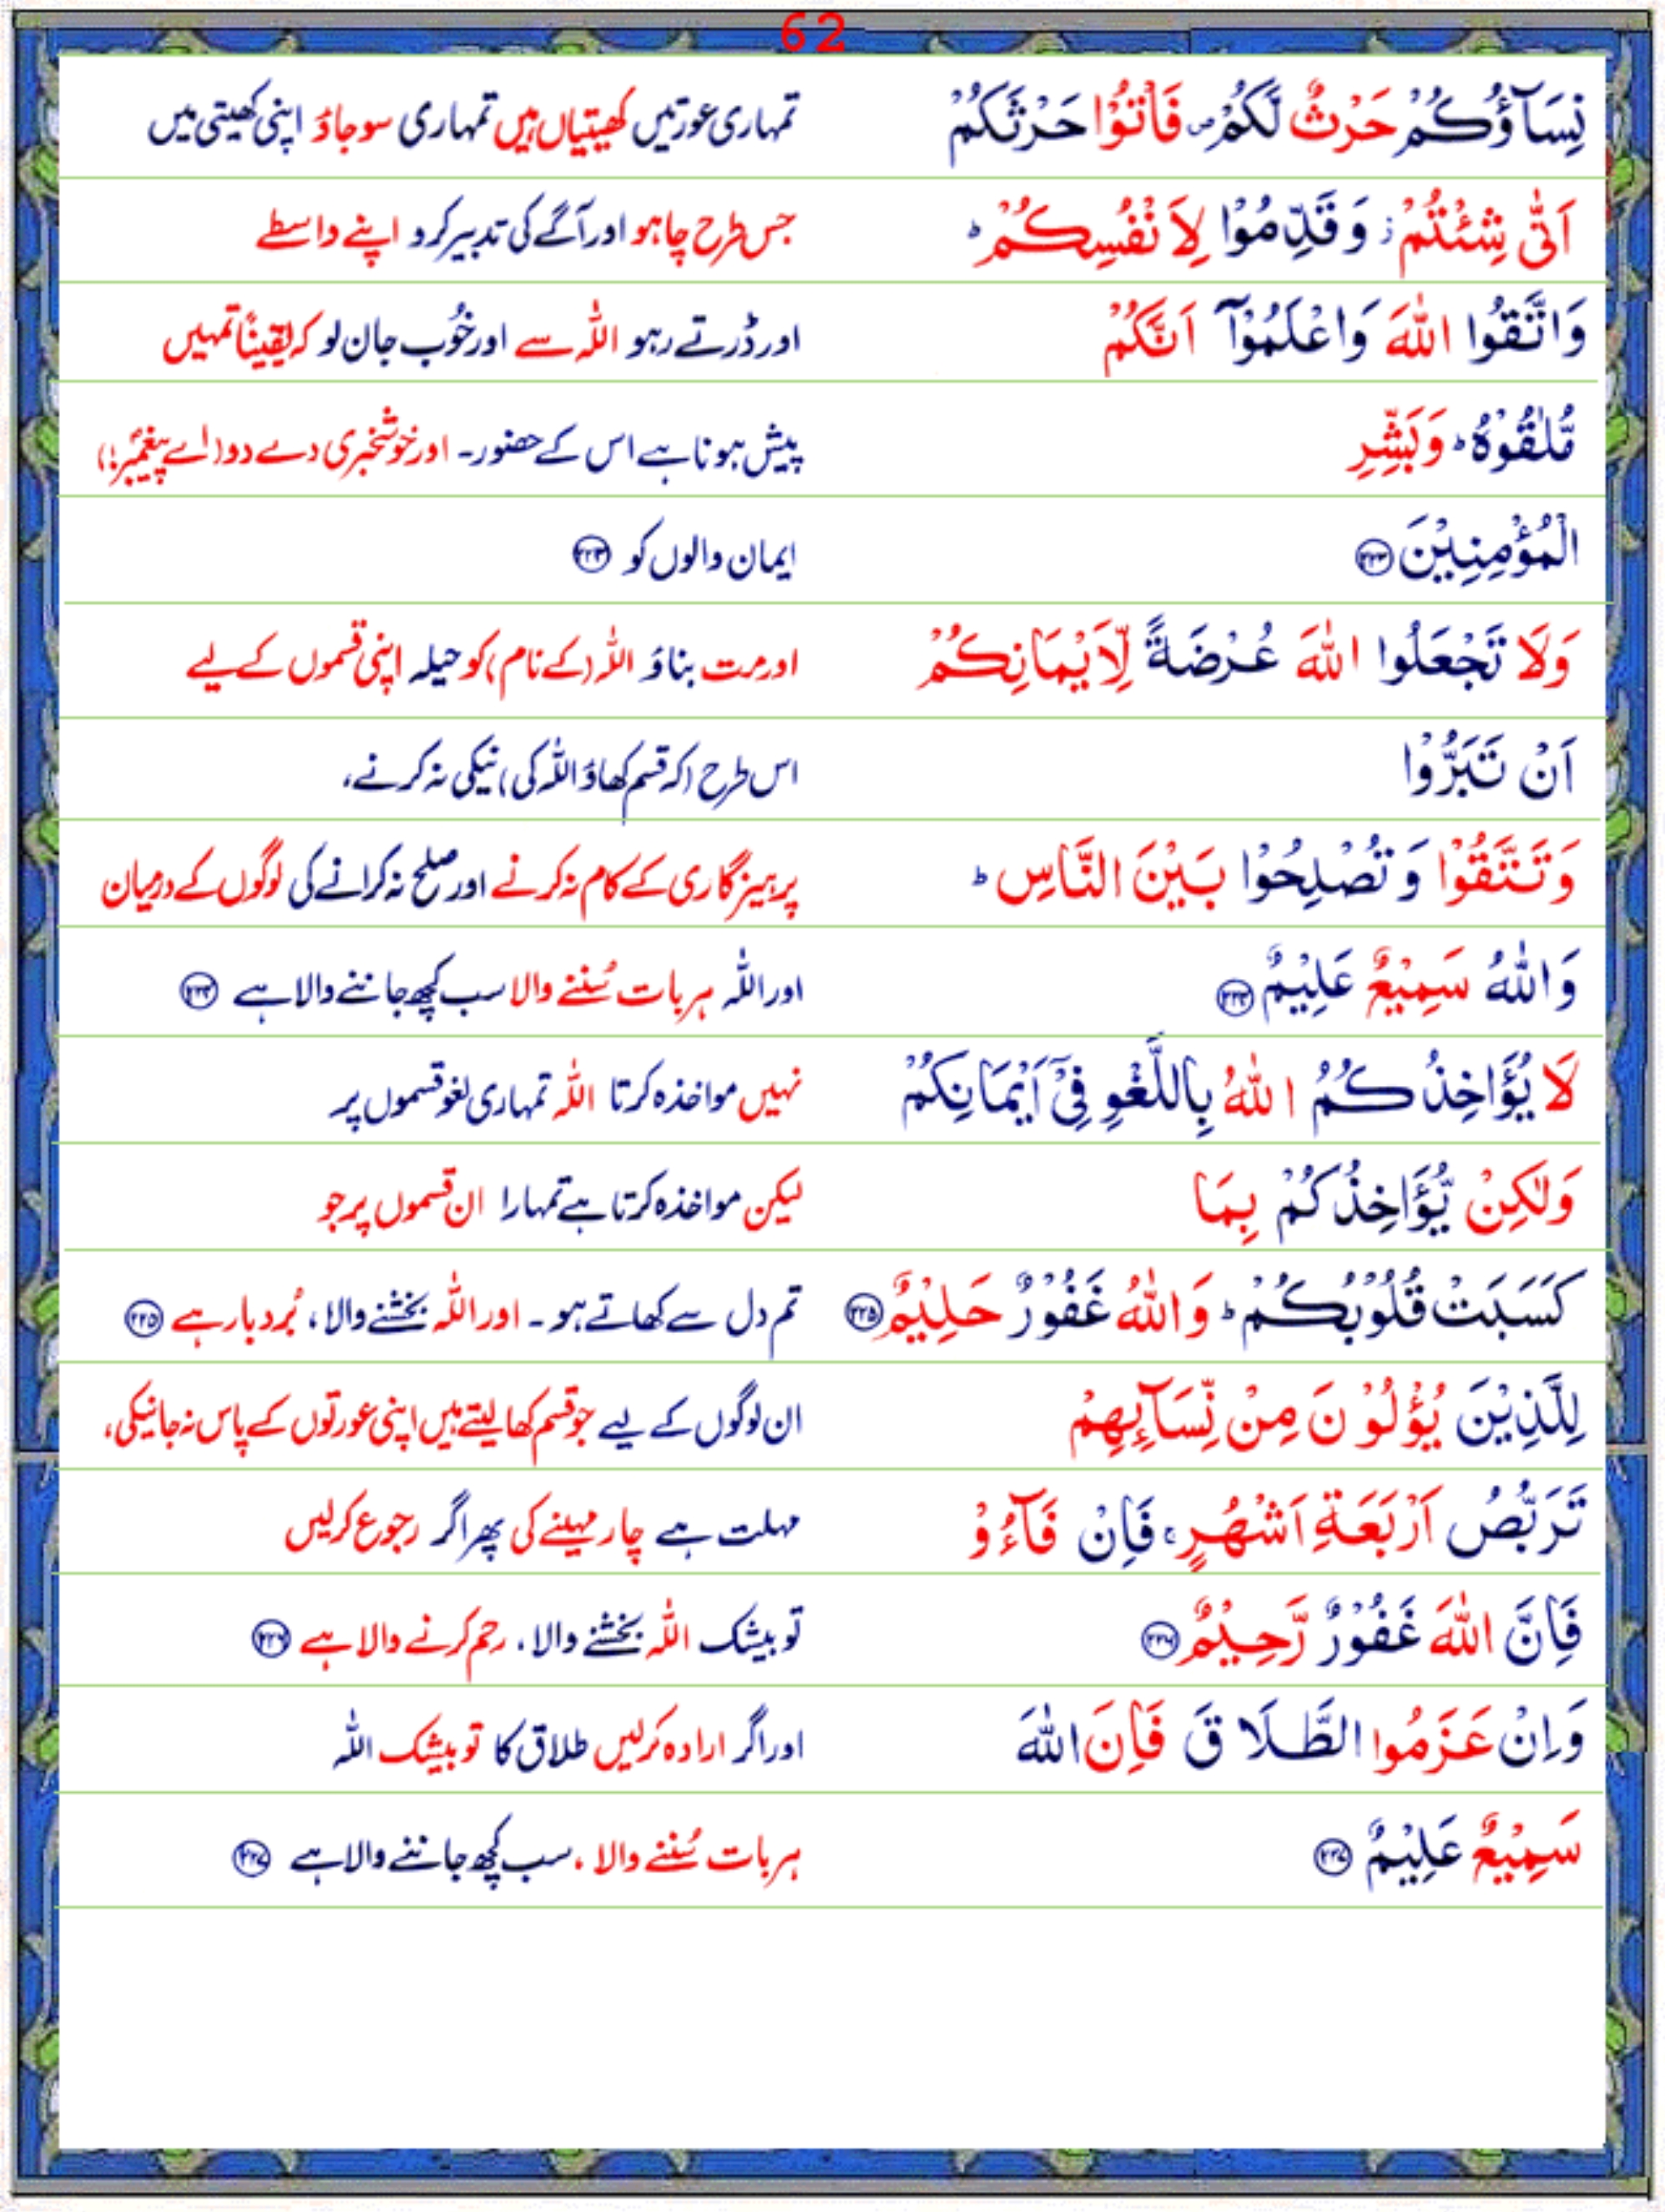 62
نِسَآؤُكُمْ حَرْثٌ لَّكُمْ ۪ فَاْتُوْا حَرْثَكُمْ تمہاری عورتیں کھیتیاں ہیں تمہاری سو جاؤ اپنی کھیتی میں
اَنّٰى شِئْتُمْ ؗ وَقَدِّمُوْا لِاَنْفُسِكُمْ ؕ جس طرح چاہو اور آگے کی تدبیر کرو اپنے واسطے
وَاتَّقُوا اللّٰهَ وَاعْلَمُوْٓا اَنَّكُمْ اور ڈرتے رہو اللّٰہ سے اور خُوب جان لو کہ یقیناً تمہیں
مُّلٰقُوْهُ ؕ وَبَشِّرِ پیش ہونا ہے اس کے حضور۔ اور خوشخبری دے دو (اے پیغمبر!)
الْمُؤْمِنِيْنَ ۲۲۳ ایمان والوں کو ۲۲۳
وَلَا تَجْعَلُوا اللّٰهَ عُرْضَةً لِّاَيْمَانِكُمْ اور مت بناؤ اللّٰہ (کے نام) کو حیلہ اپنی قسموں کے لیے
اَنْ تَبَرُّوْا اس طرح (کہ قسم کھاؤ اللّٰہ کی) نیکی نہ کرنے،
وَتَتَّقُوْا وَتُصْلِحُوْا بَيْنَ النَّاسِ ؕ پرہیزگاری کے کام نہ کرنے اور صلح نہ کرانے کی لوگوں کے درمیان
وَاللّٰهُ سَمِيْعٌ عَلِيْمٌ ۲۲۴ اور اللّٰہ ہر بات سُننے والا سب کچھ جاننے والا ہے ۲۲۴
لَا يُؤَاخِذُكُمُ اللّٰهُ بِاللَّغْوِ فِيْٓ اَيْمَانِكُمْ نہیں مواخذہ کرتا اللّٰہ تمہاری لغو قسموں پر
وَلٰكِنْ يُّؤَاخِذُكُمْ بِمَا لیکن مواخذہ کرتا ہے تمہارا ان قسموں پر جو
كَسَبَتْ قُلُوْبُكُمْ ؕ وَاللّٰهُ غَفُوْرٌ حَلِيْمٌ ۲۲۵ تم دل سے کھاتے ہو۔ اور اللّٰہ بخشنے والا، بُردبار ہے ۲۲۵
لِلَّذِيْنَ يُؤْلُوْنَ مِنْ نِّسَآئِهِمْ ان لوگوں کے لیے جو قسم کھا لیتے ہیں اپنی عورتوں کے پاس نہ جانیکی،
تَرَبُّصُ اَرْبَعَةِ اَشْهُرٍ ۚ فَاِنْ فَآءُوْ مہلت ہے چار مہینے کی پھر اگر رجوع کرلیں
فَاِنَّ اللّٰهَ غَفُوْرٌ رَّحِيْمٌ ۲۲۶ تو بیشک اللّٰہ بخشنے والا، رحم کرنے والا ہے ۲۲۶
وَاِنْ عَزَمُوا الطَّلَاقَ فَاِنَ اللّٰهَ اور اگر ارادہ کرلیں طلاق کا تو بیشک اللّٰہ
سَمِيْعٌ عَلِيْمٌ ۲۲۷ ہر بات سُننے والا، سب کچھ جاننے والا ہے ۲۲۷